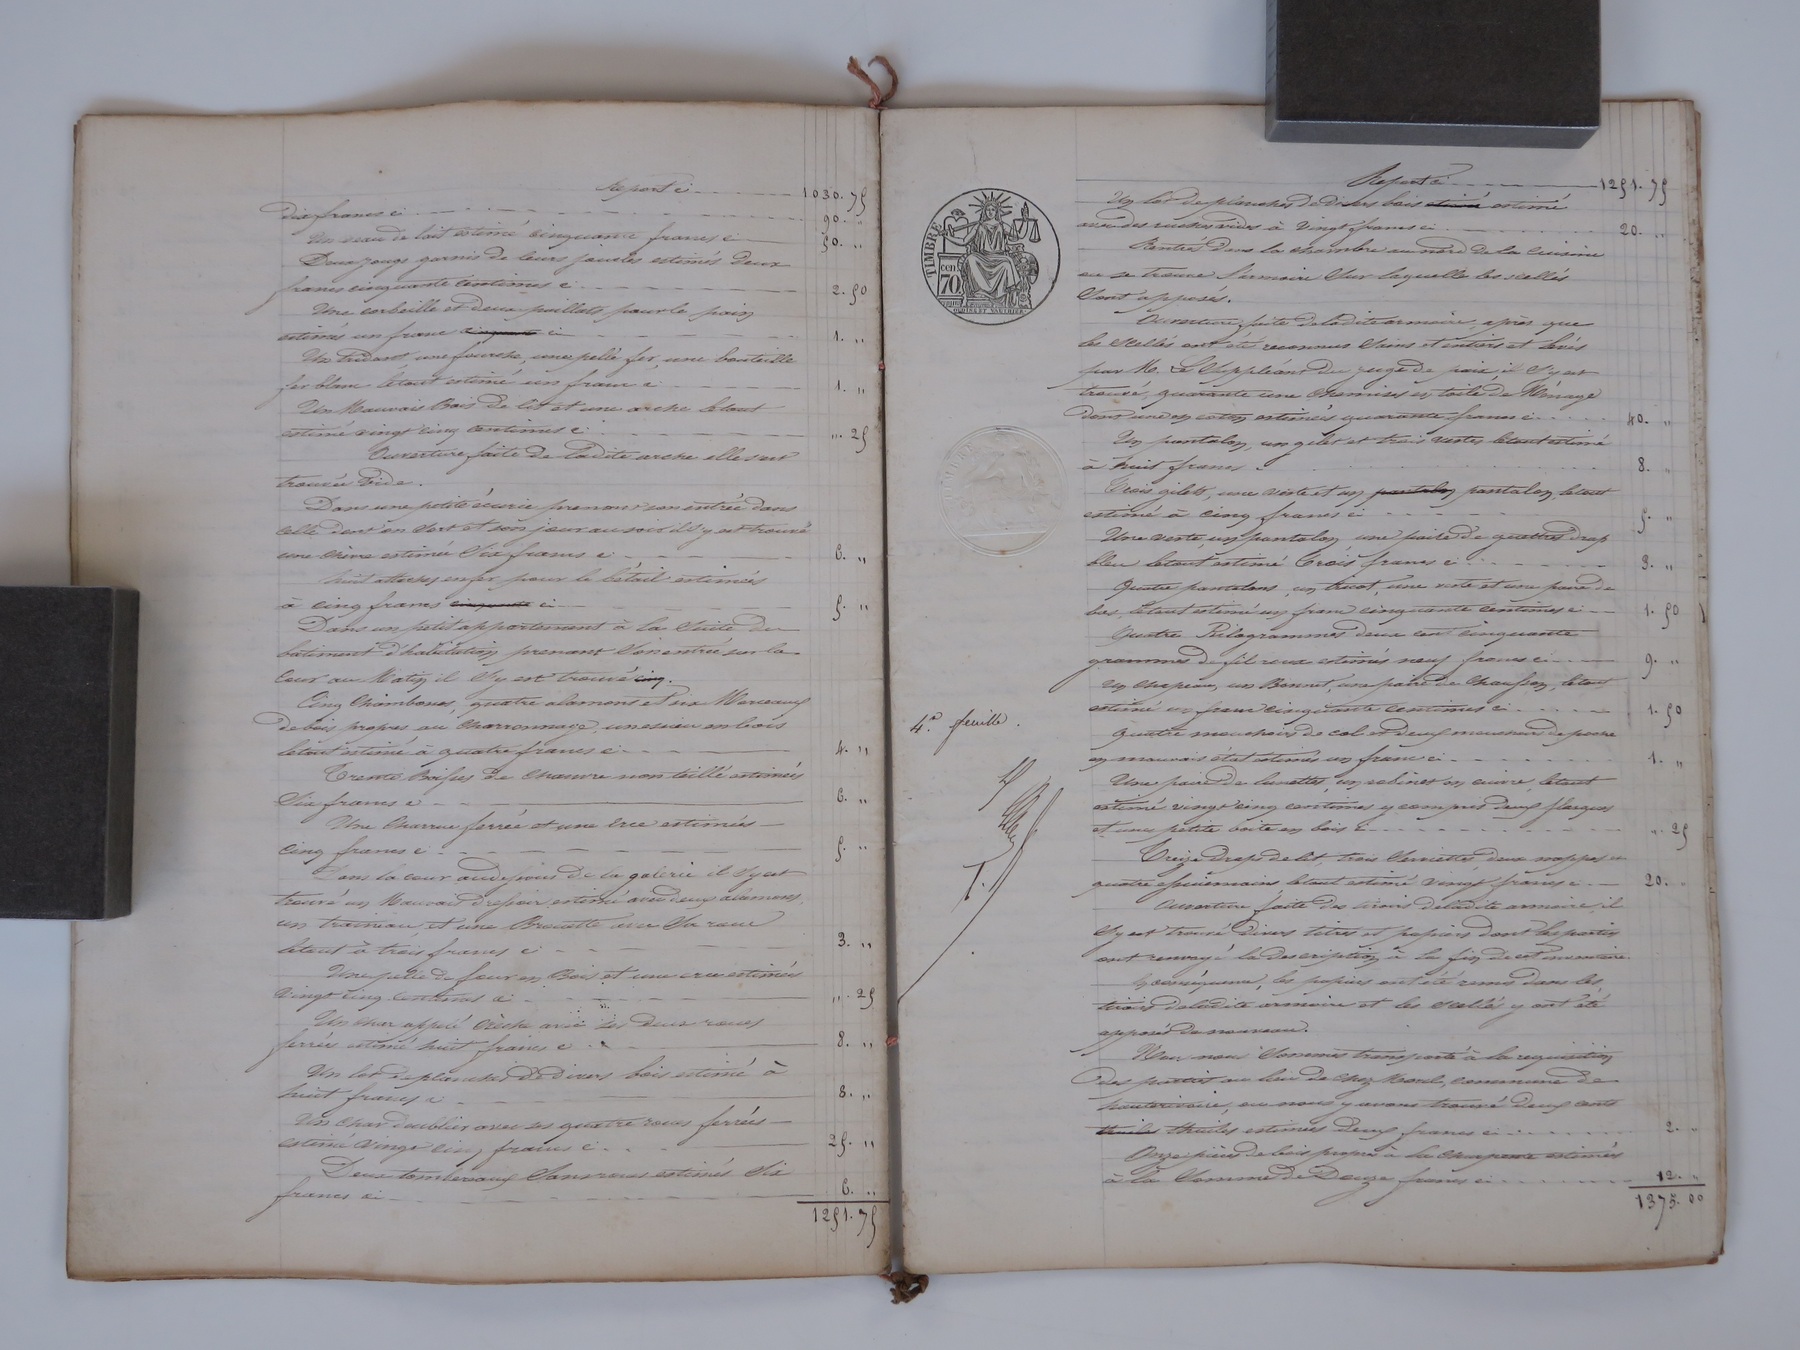 Report ci 1030. 75
Dix francs ci 90. "
Un veau de lait estimé cinquante francs ci 50. "
Deux jougs garnis de leurs juiles estimés deux
francs cinquante centimes ci 2. 50
Une corbeille et deux paillats pour le pain
estimés un franc cinquante ci 1. "
Un trident, une fourche, une pelle fer, une bouteille
fer blanc le tout estimé un franc ci 1. "
Un Mauvais Bois de lit et une arche le tout
estimé vingt cinq centimes ci ". 25
Ouverture faite de ladite arche elle s'est
trouvée vide.
Dans une petite écurie prenant son entrée dans
celle dont on sort et son jour au soir il s'y est trouvé
une chèvre estimée Six francs ci 6. "
huit attaches en fer pour le bétail estimées
à cinq francs cinquante ci 5. "
Dans un petit appartement à la Suite du
bâtiment d'habitation prenant son entrée sur la
Cour au Matin il s'y est trouvé cinq.
Cinq Chambones, quatre alamons et six Morceaux
de bois propres au Charronnage, un essieu en bois
le tout estimé à quatre francs ci 4. "
Trente de Chanvre non teillé estimés
Six francs ci 6. "
Une Charrue ferrée et une estimées
cinq francs ci 5. "
Dans la cour au dessous de la galerie il s'y est
trouvé un Mauvais dressoir estimé avec deux alamons,
un traineau, et une Brouette avec Sa roue
le tout à trois francs ci 3. "
Une pelle de four en Bois et une estimées
vingt cinq centimes ci ". 25
Un char appelé avec ses deux roues
ferrées estimé huit francs ci 8. "
Un lot de planches de divers bois estimé à
huit francs ci 8. "
Un Char avec ses quatre roues ferrées
estimé vingt cinq francs ci 25. "
Deux tombereaux Sans roues estimés Six
francs ci 6. "
1251. 75
TIMBRE
CCD
70
Report ci 1251. 75
Un lot de planches de divers bois estimé estimé
avec des ruches vides à vingt francs ci 20. "
Rentrés dans la chambre au nord de la cuisine
où se trouve l'armoire Sur laquelle les scellés
Sont apposés.
Ouverture faite de ladite armoire, après que
les Scellés ont été reconnus Sains et entiers et levés
par M. Le Suppléant du juge de paix, il s'y est
trouvé, quarante une Chemises en toile de Ménage
dont une en coton estimées quarante francs ci 40. "
Un pantalon, un gilet et trois vestes le tout estimé
à huit francs 8. "
Trois gilets, une veste et un pantalon pantalon, le tout
estimé à cinq francs ci 5. "
Une veste, un pantalon une paire de guêtres drap
bleu le tout estimé trois francs ci 3. "
Quatre pantalons, un tricot, une veste et une paire de
bas, le tout estimé un franc cinquante centimes ci 1. 50
Quatre Kilogrammes deux cent cinquante
grammes de fil roux estimés neuf francs ci 9. "
Un chapeau, un Bonnet, une paire de Chausson, le tout
estimé un franc cinquante centimes ci 1. 50
Quatre mouchoirs de col et deux mouchoirs de poche
en mauvais état estimés un franc ci 1. "
Une paire de lunettes, un robinet en cuivre, le tout
estimé vingt cinq centimes y compris deux flacons
et une petite boite en bois ci ". 25
4e. feuille.
Treize draps de lit, trois Serviettes, deux nappes et
quatre essuiemains le tout estimé vingt francs ci 20. "
Ouverture faite des tiroirs de ladite armoire, il
s'y est trouvé divers titres et papiers dont les parties
ont renvoyé la description à la fin de cet inventaire.
En conséquence, les papiers ont été remis dans les
tiroirs de ladite armoire et les Scellés y ont été
apposés de nouveau.
Nous nous Sommes transporté à la requisition
des parties au lieu de chez commune de
hauterivoire, où nous y avons trouvé deux cents
thuiles thuiles estimées deux francs ci 2. "
Onze pièces de bois propre à la charpente estimées
à la Somme de Douze francs ci 12. "
1375. 00